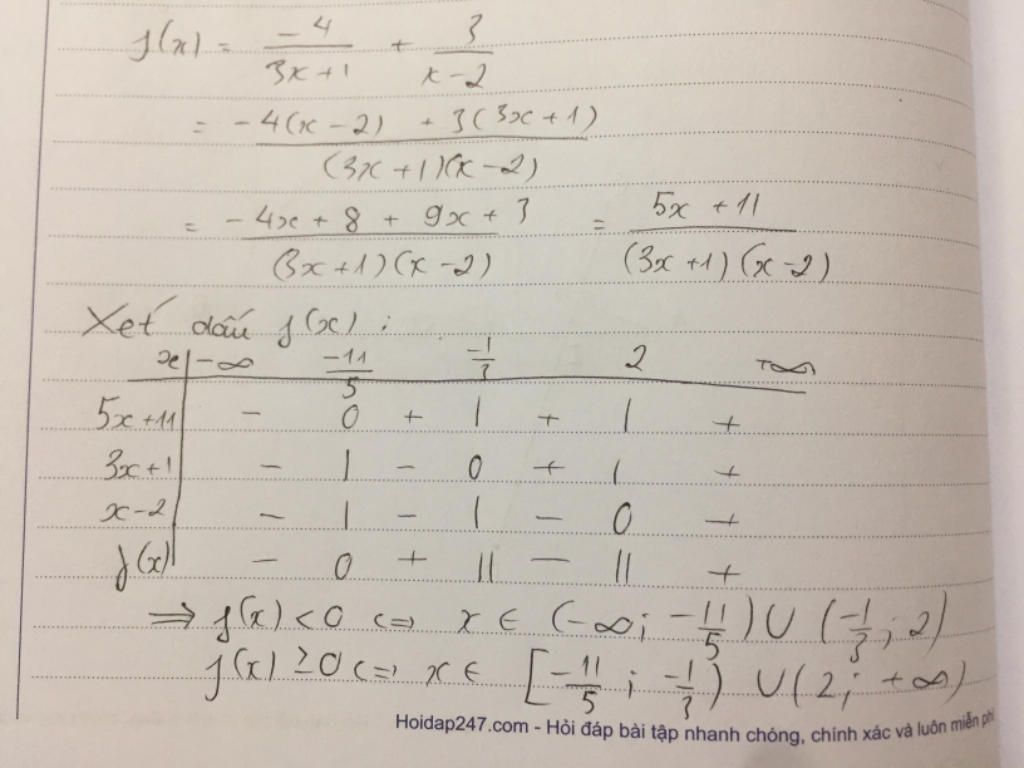 f(x) = -4/(3x+1) + 3/(x-2)
= (-4(x-2) + 3(3x+1))/((3x+1)(x-2))
= (-4x + 8 + 9x + 3)/((3x+1)(x-2)) = (5x + 11)/((3x+1)(x-2))
Xét dấu f(x) :
x | -∞ -11/5 -1/3 2 +∞
5x+11 | - 0 + | + | +
3x+1 | - | - 0 + | +
x-2 | - | - | - 0 +
f(x) | - 0 + || - || +
⇒ f(x) < 0 ⇔ x ∈ (-∞; -11/5) ∪ (-1/3; 2)
f(x) ≥ 0 ⇔ x ∈ [-11/5; -1/3) ∪ (2; +∞)
Hoidap247.com - Hỏi đáp bài tập nhanh chóng, chính xác và luôn miễn phí